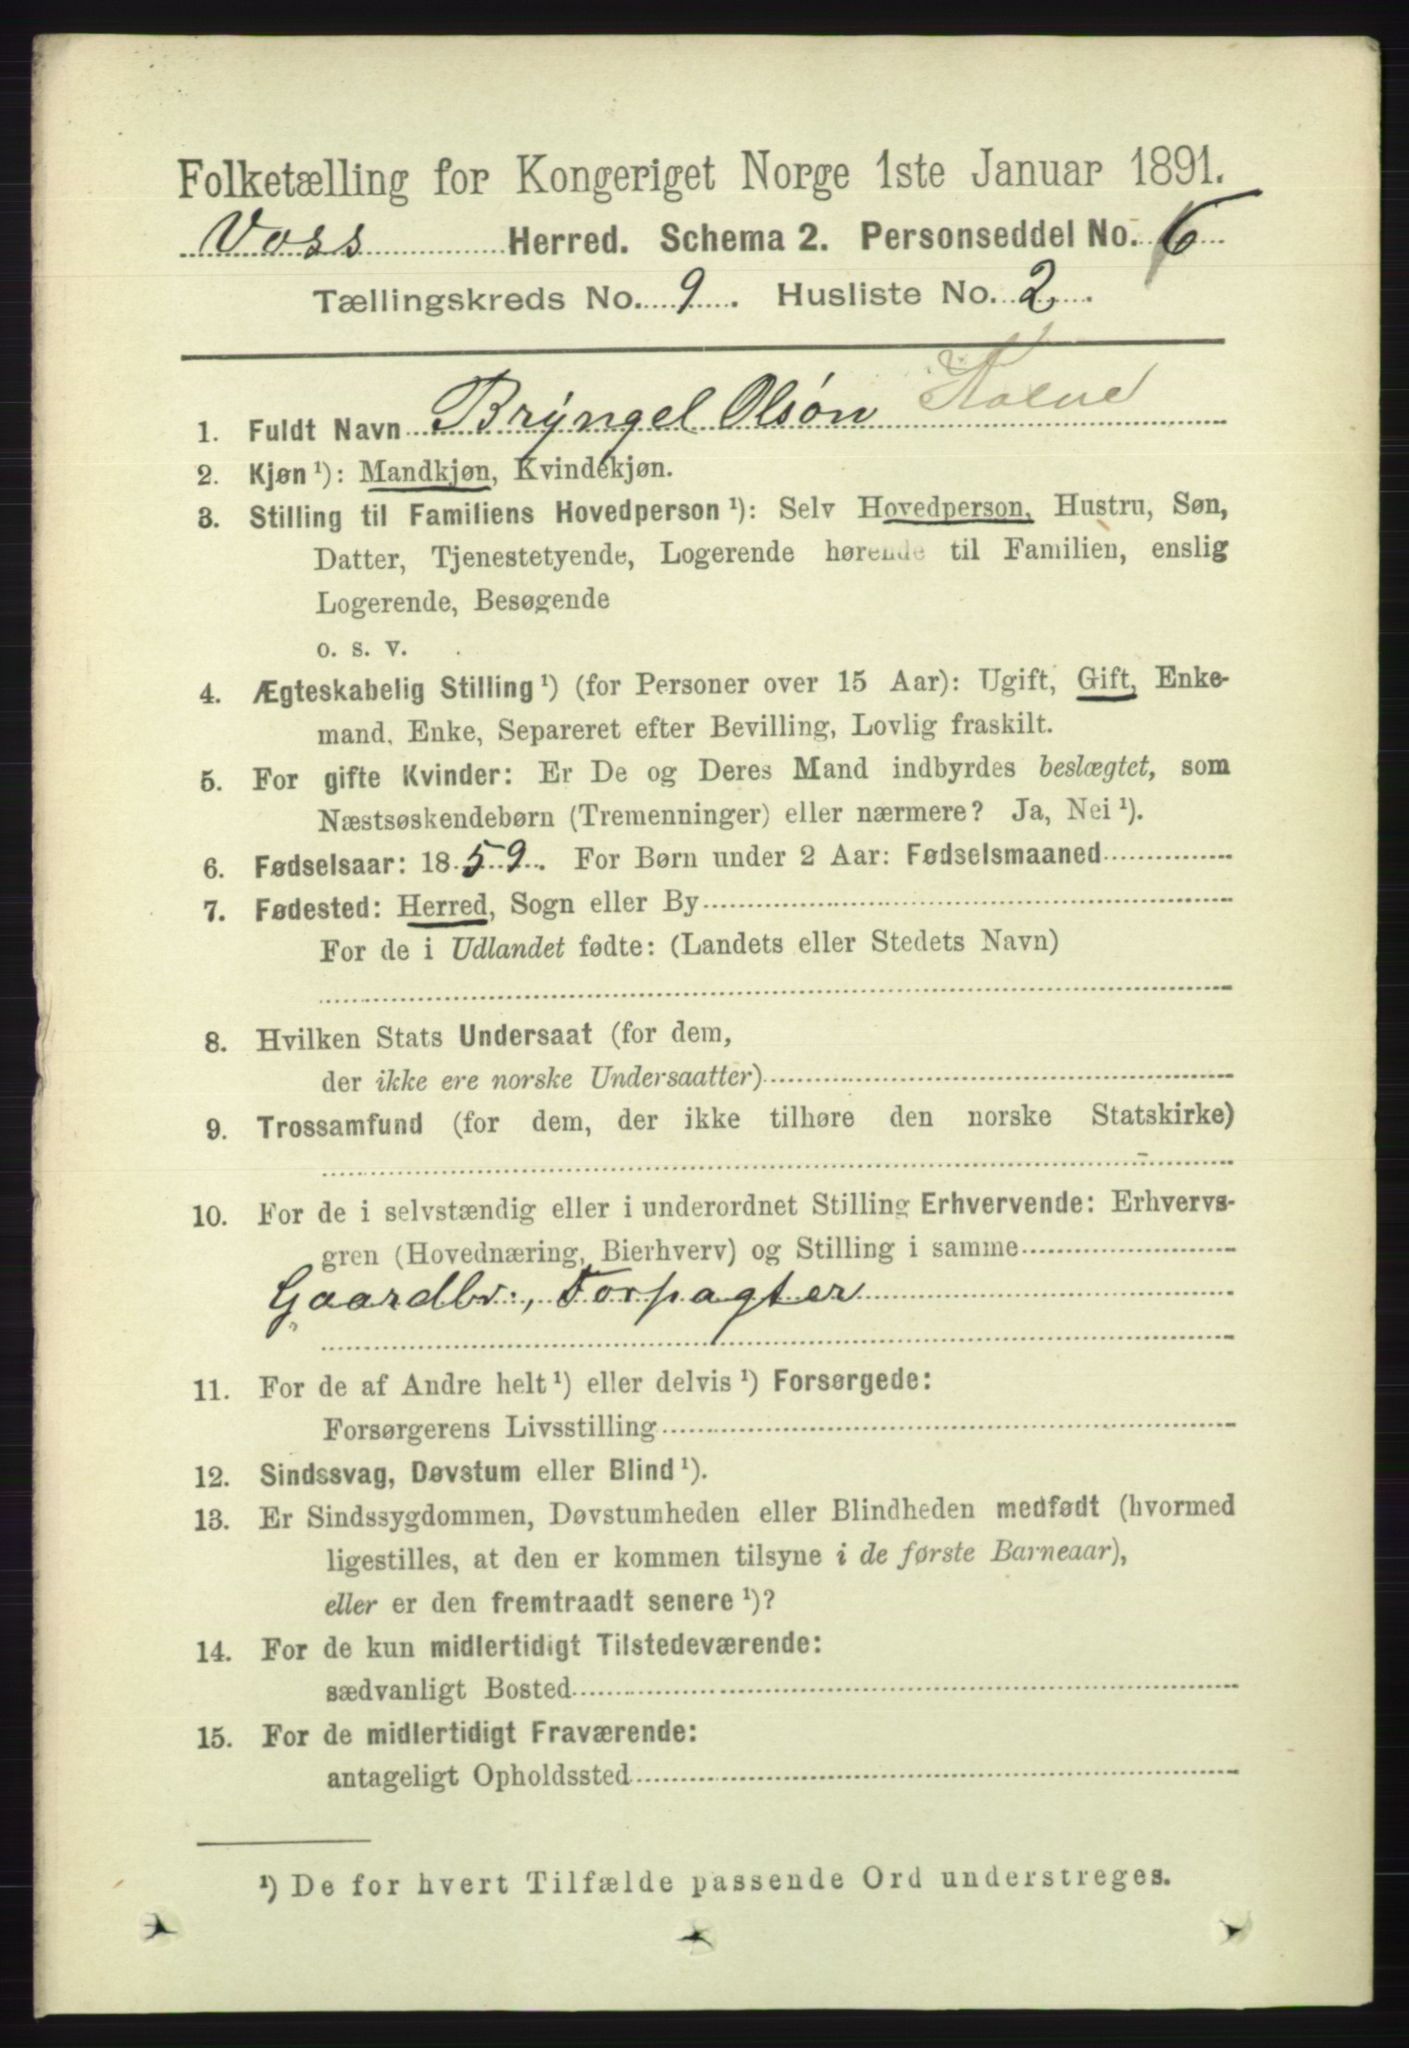 Folketælling for Kongeriget Norge 1ste Januar 1891.
Voss Herred. Schema 2. Personseddel No. 6
Tællingskreds No. 9. Husliste No. 2.
1. Fuldt Navn Bryngel Olsøn
2. Kjøn¹): Mandkjøn, Kvindekjøn.
3. Stilling til Familiens Hovedperson¹): Selv Hovedperson, Hustru, Søn,
Datter, Tjenestetyende, Logerende hørende til Familien, enslig
Logerende, Besøgende
o. s. v.
4. Ægteskabelig Stilling¹) (for Personer over 15 Aar): Ugift, Gift, Enke-
mand, Enke, Separeret efter Bevilling, Lovlig fraskilt.
5. For gifte Kvinder: Er De og Deres Mand indbyrdes beslægtet, som
Næstsøskendebørn (Tremenninger) eller nærmere? Ja, Nei¹).
6. Fødselsaar: 1859. For Børn under 2 Aar: Fødselsmaaned
7. Fødested: Herred, Sogn eller By
For de i Udlandet fødte: (Landets eller Stedets Navn)
8. Hvilken Stats Undersaat (for dem,
der ikke ere norske Undersaatter)
9. Trossamfund (for dem, der ikke tilhøre den norske Statskirke)
10. For de i selvstændig eller i underordnet Stilling Erhvervende: Erhvervs-
gren (Hovednæring, Bierhverv) og Stilling i samme
Gaardbr., Forpagter
11. For de af Andre helt¹) eller delvis¹) Forsørgede:
Forsørgerens Livsstilling
12. Sindssvag, Døvstum eller Blind¹).
13. Er Sindssygdommen, Døvstumheden eller Blindheden medfødt (hvormed
ligestilles, at den er kommen tilsyne i de første Barneaar),
eller er den fremtraadt senere¹)?
14. For de kun midlertidigt Tilstedeværende:
sædvanligt Bosted
15. For de midlertidigt Fraværende:
antageligt Opholdssted
¹) De for hvert Tilfælde passende Ord understreges.